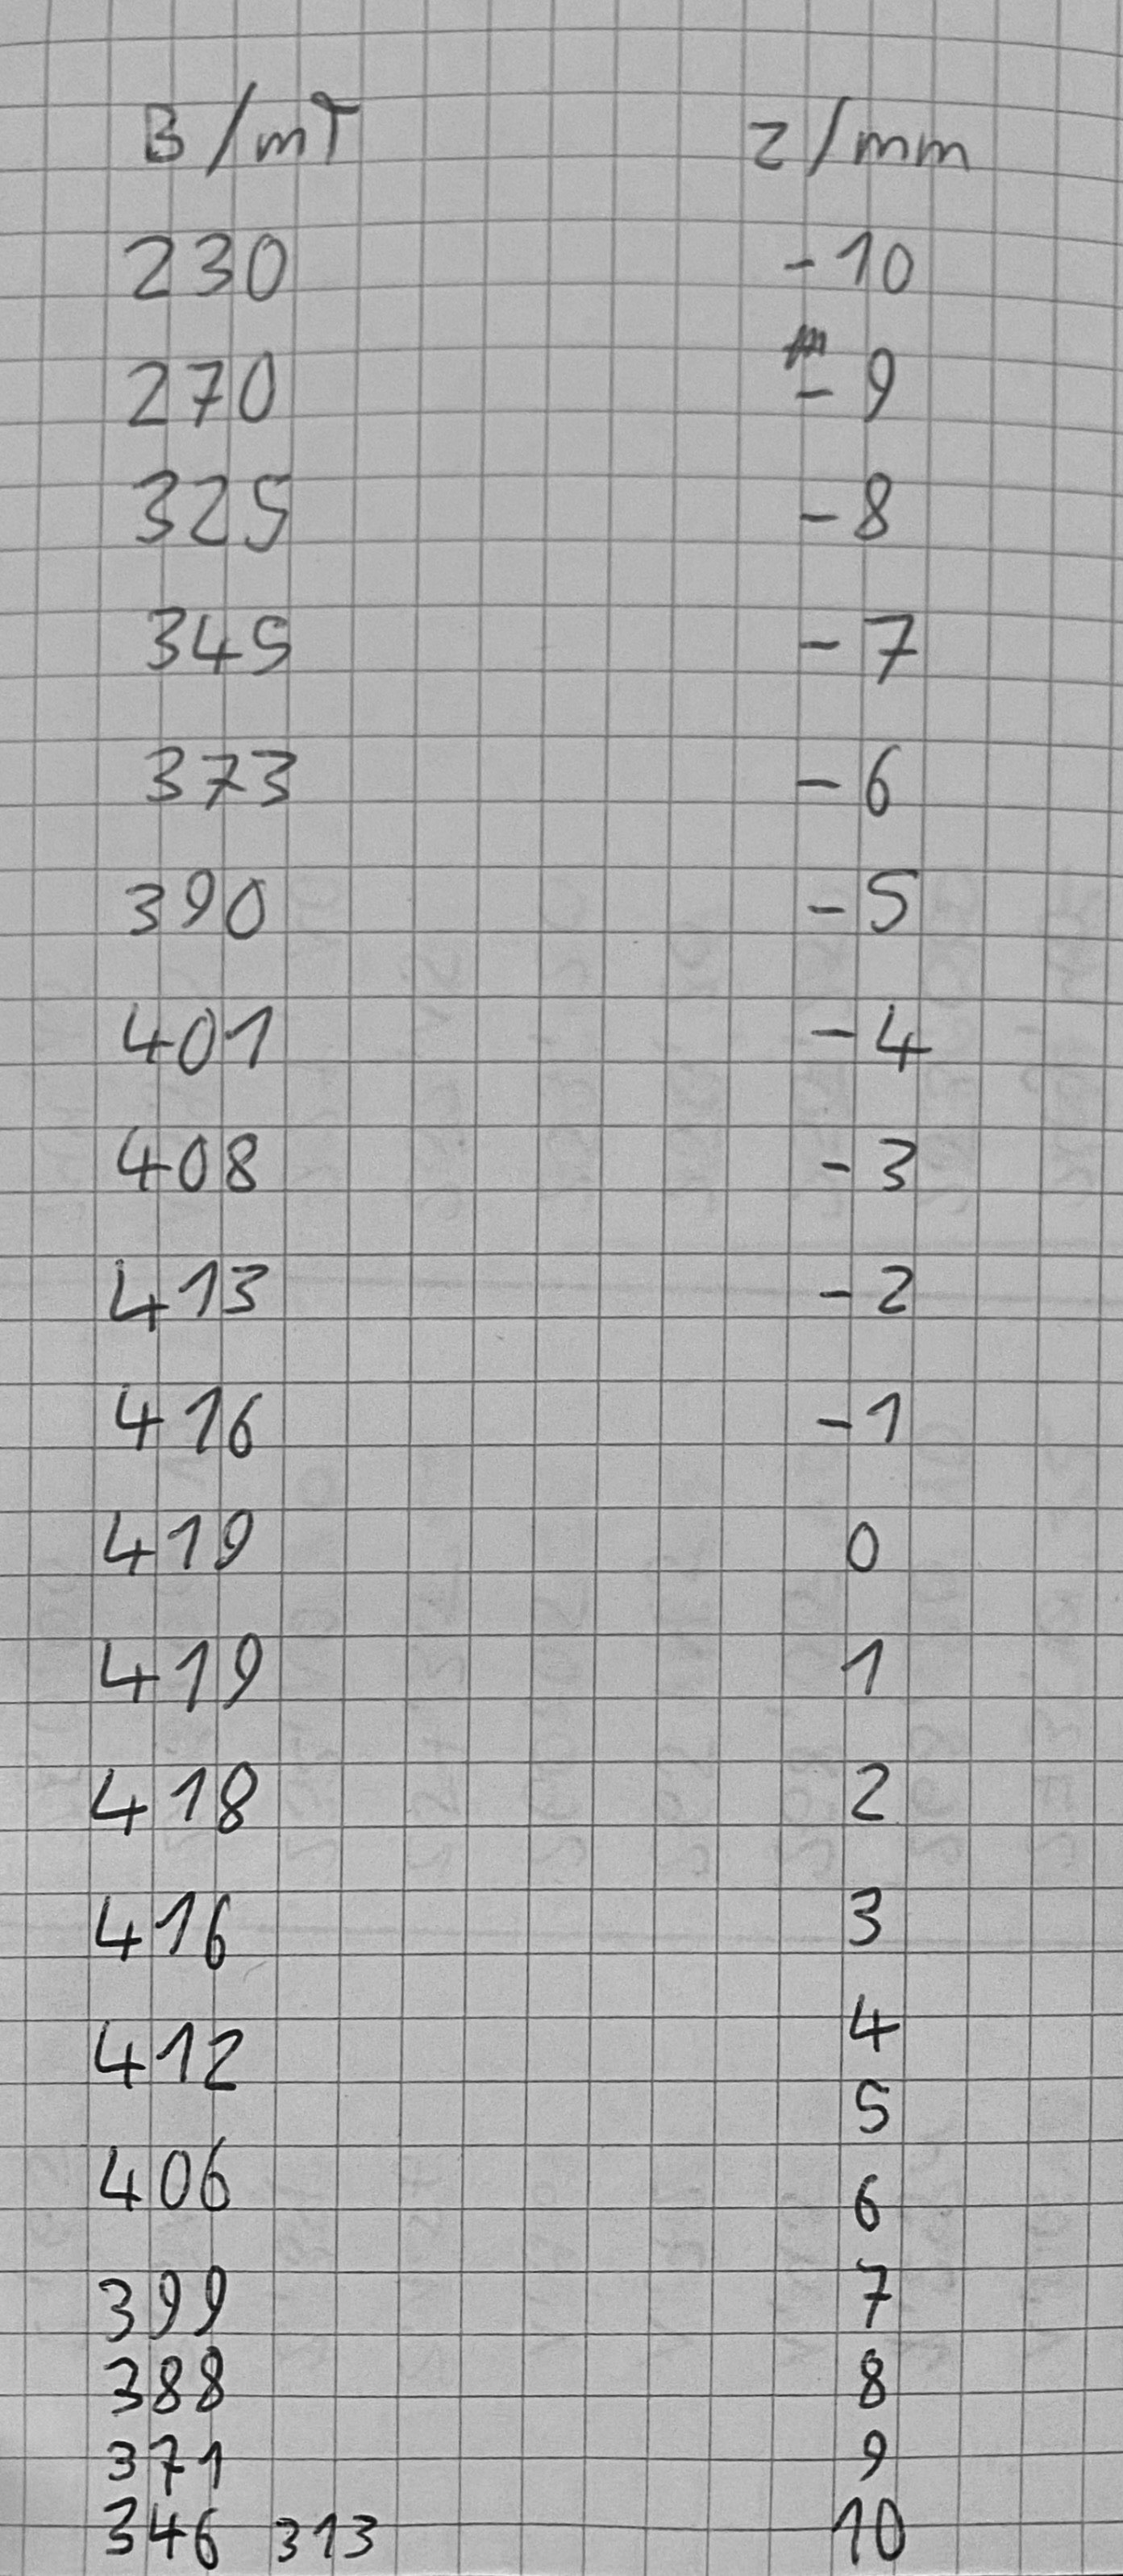 B/mT z/mm
230 -10
270 -9
325 -8
345 -7
373 -6
390 -5
401 -4
408 -3
413 -2
416 -1
419 0
419 1
418 2
416 3
412 4
5
406 6
399 7
388 8
371 9
346 313 10